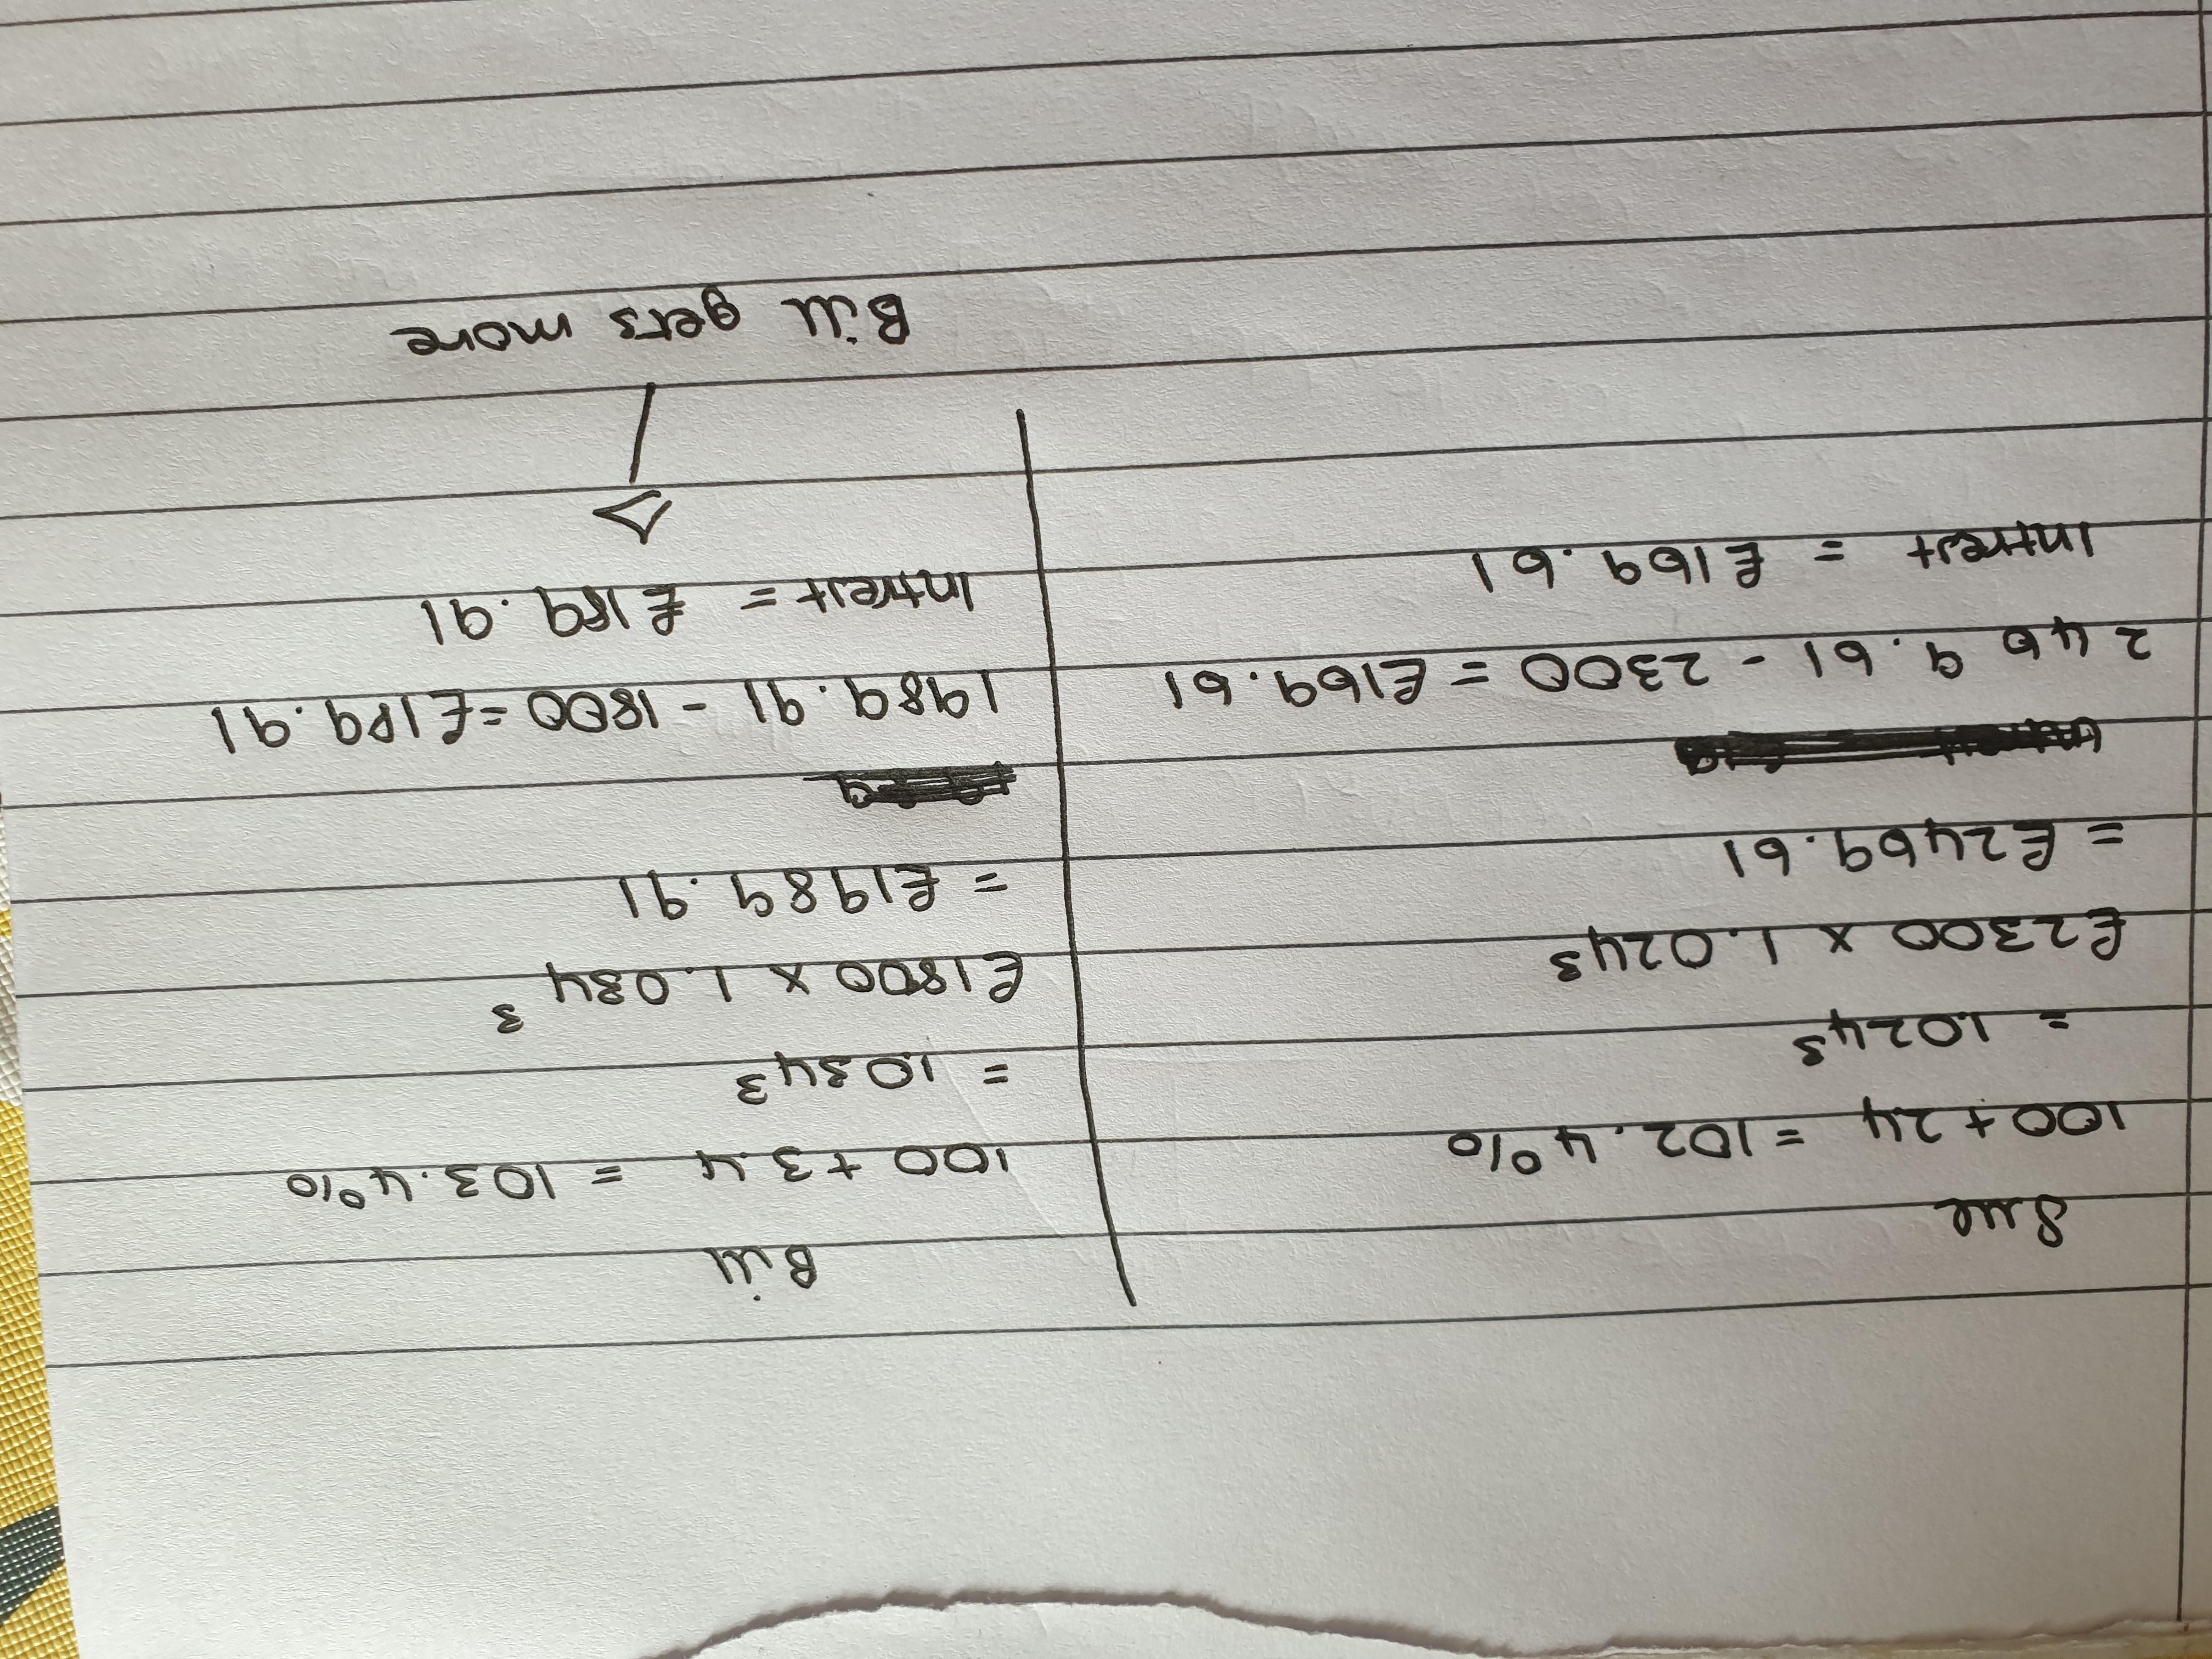 Sue
100 + 24 = 102.4%
= 1.024³
£2300 x 1.024³
= £2469.61
2469.61 - 2300 = £169.61
Intrest = £169.61
Bill
100 + 3.4 = 103.4%
= 1.034³
£1800 x 1.034³
= £1989.91
1989.91 - 1800 = £189.91
Intrest = £189.91
Bill gets more